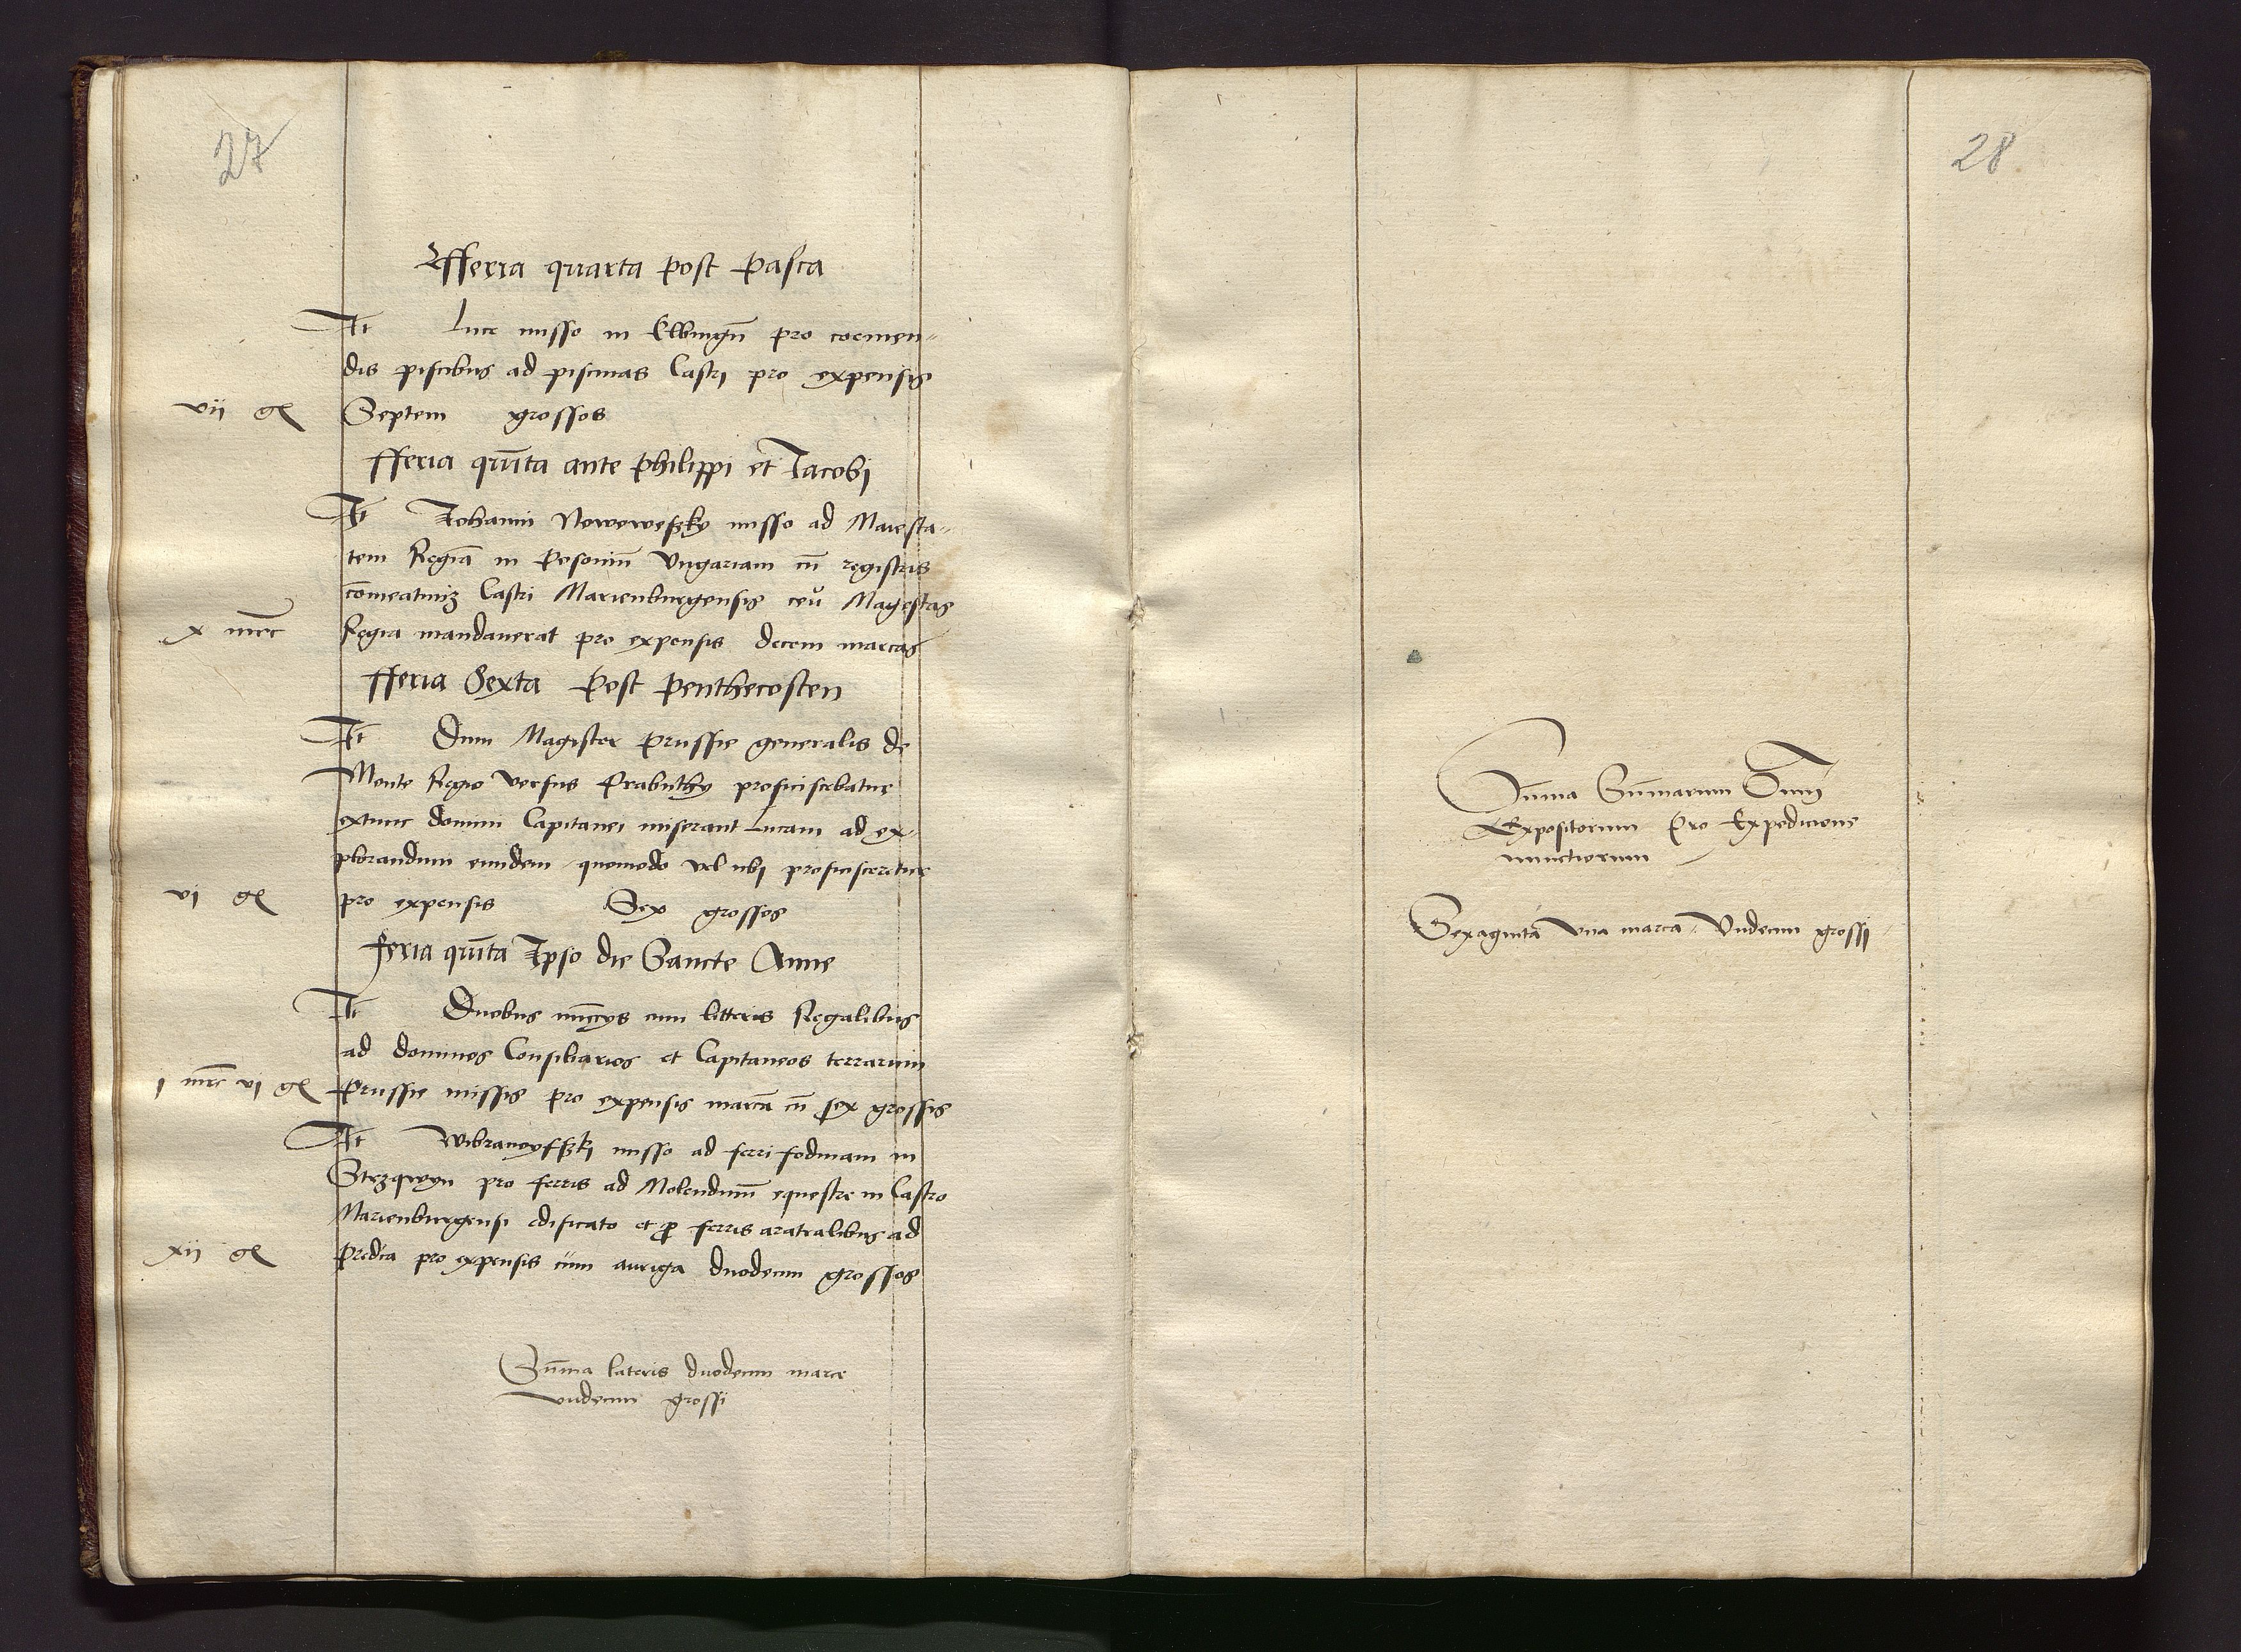 27
Fferia quarta post pasca
It Luce misso in Elbingn̄ pro coemen-
dis piscibus ad piscinas Castri pro expensis
vij gͬ Septem grossos
fferia quīta ante philippi et Jacobi
It Johanni Nowoweßky misso ad Maiesta-
tem Regiā in Posoniū Ungariam cū registris
Castri Marienburgensis ceu Magestas
x mrc Regia mandauerat pro expensis decem marcas
fferia Sexta post penthecosten
It Dum Magister prussie generalis de
Monte Regio versus Prabuthy proficiscebatur
extunc domini Capitanei miserant Lucam ad ex-
plorandum eundem quomodo vel ubj proficisceretur
vj gͬ pro expensis Sex grossos
feria quīta Ipso die Sancte Anne
It Duobus nūccys cum litteris Regalibus
ad dominos Consiliarios et Capitaneos terrarum
j mrc vj gͬ prussie missis pro expensis marcā cū sex grossis
It misso ad ferri fodinam in
pro ferris ad Molendinū equestre in Castro
Marienburgensi edificato et ꝓ ferris aratralibus ad
xij gͬ predia pro expensis cum auriga duodecim grossos
Sūma lateris duodecim marce
undecim grossi
28
Sūma Sūmarum
Expositorum Pro Expedicione
nunctiorum
Sexaginta Una marca Undecim grossi